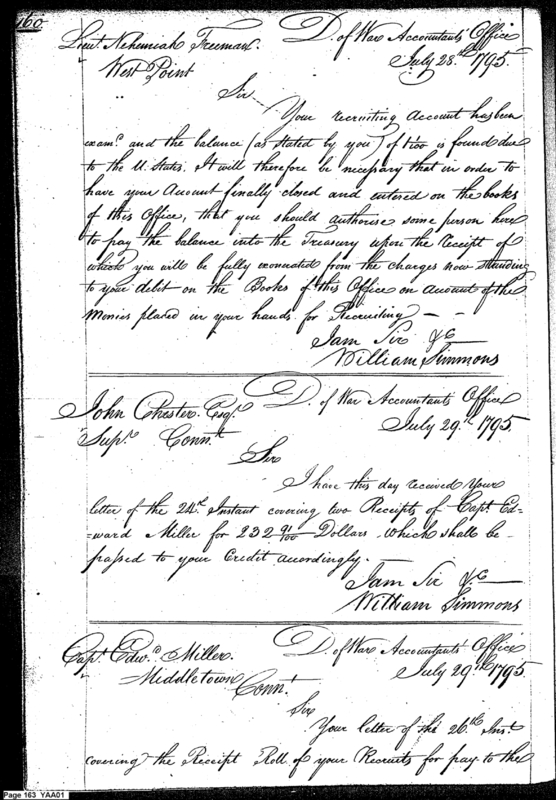 160
Lieut. Nehemiah Freeman. D. of War Accountants Office
West Point July 28th 1795.
Sir
Your recruiting Account has been
examd. and the balance (as stated by you) of is found due
to the U. States. It will therefore be necessary that in order to
have your Account finally closed and entered on the books
of this Office, that you should authorise some person here
to pay the balance into the Treasury upon the Receipt of
which you will be fully exonerated from the charges now standing
to your debit on the Books of this Office on Account of the
Monies placed in your hands for Recruiting
I am Sir &c
William Simmons
John Chester Esqr. D. of War Accountants Office
Supt. Connt. July 29th. 1795
Sir
I have this day received Your
letter of the 24th. Instant covering two Receipts of Capt. Ed=
=ward Miller for 232 91/100 Dollars which shall be
passed to your Credit accordingly.
I am Sir &c
William Simmons
Capt. Edwd. Miller. D. of War Accountants Office
Middletown July 29th 1795
Connt.
Sir
Your letter of the 26th Inst.
covering the Receipt Roll of your Recruits for pay to the
Page 163 YAA01